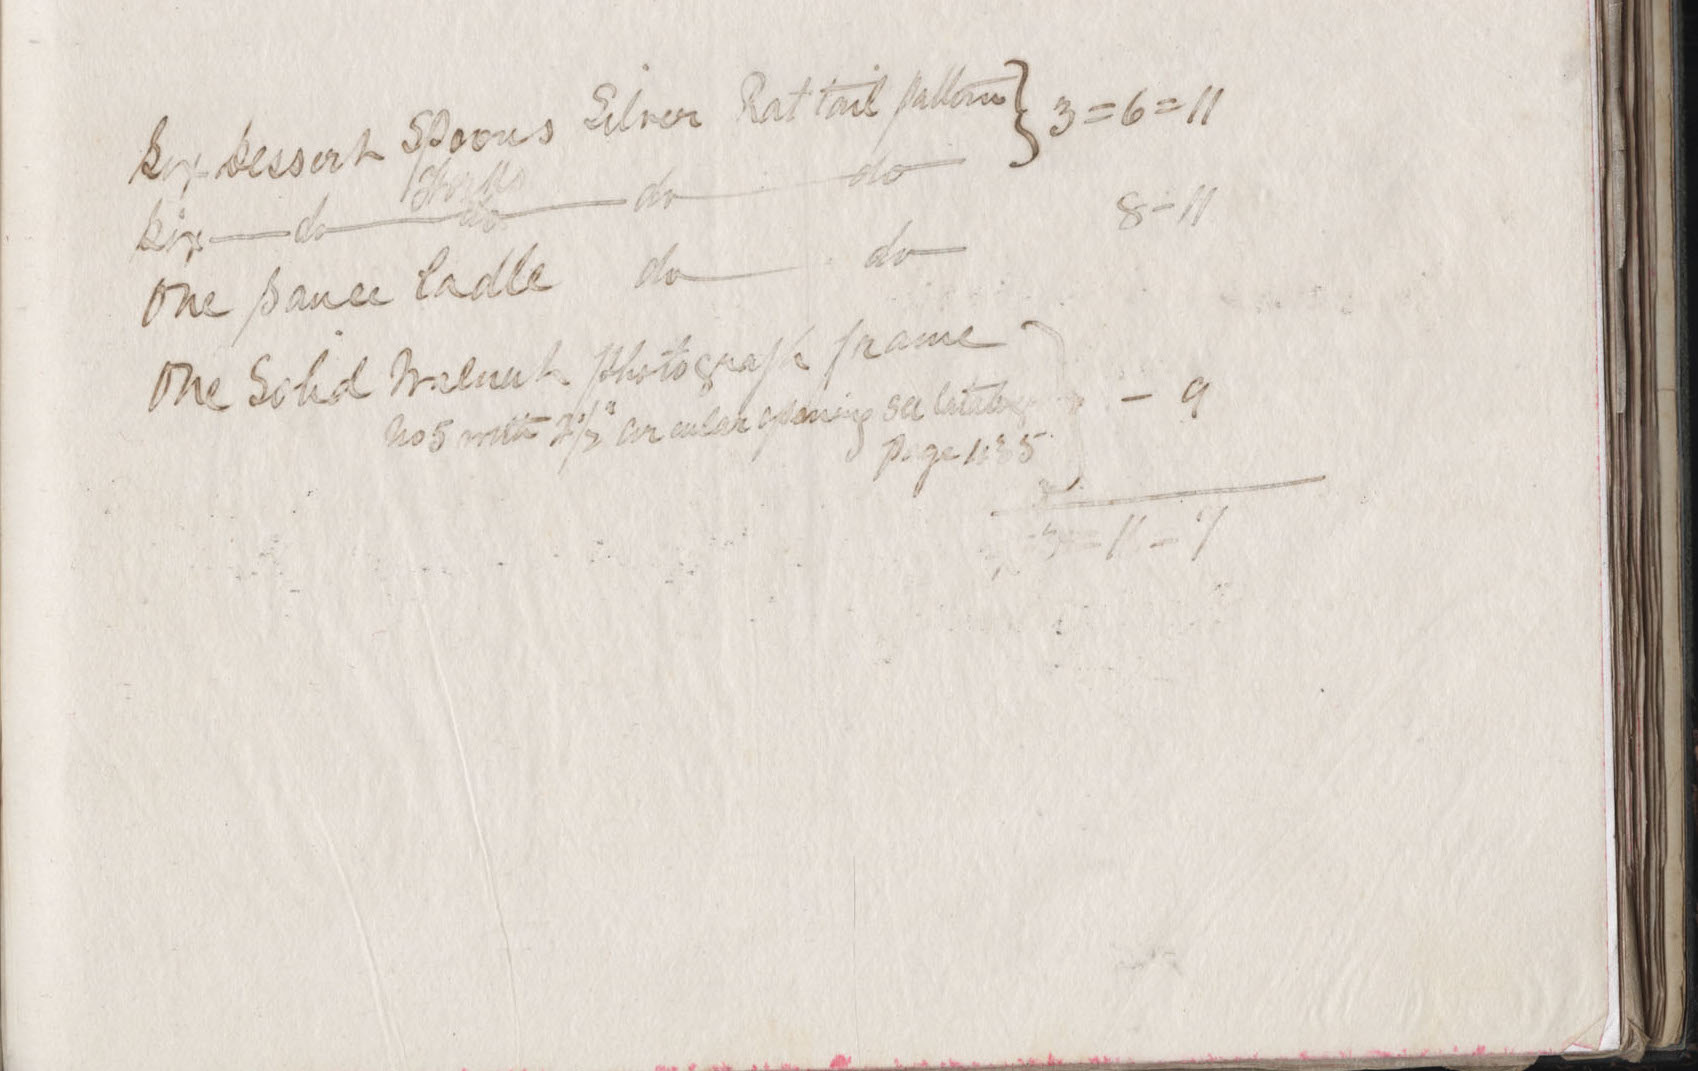 Six Dessert Spoons Silver Rat tail pattern } 3 = 6 = 11
Forks
Six — do — do — do — do
8 - 11
One Sauce Ladle do — do
One Solid Walnut photograph frame
No 5 with circular opening see Catalog - 9
page 1135
= 11 - 7